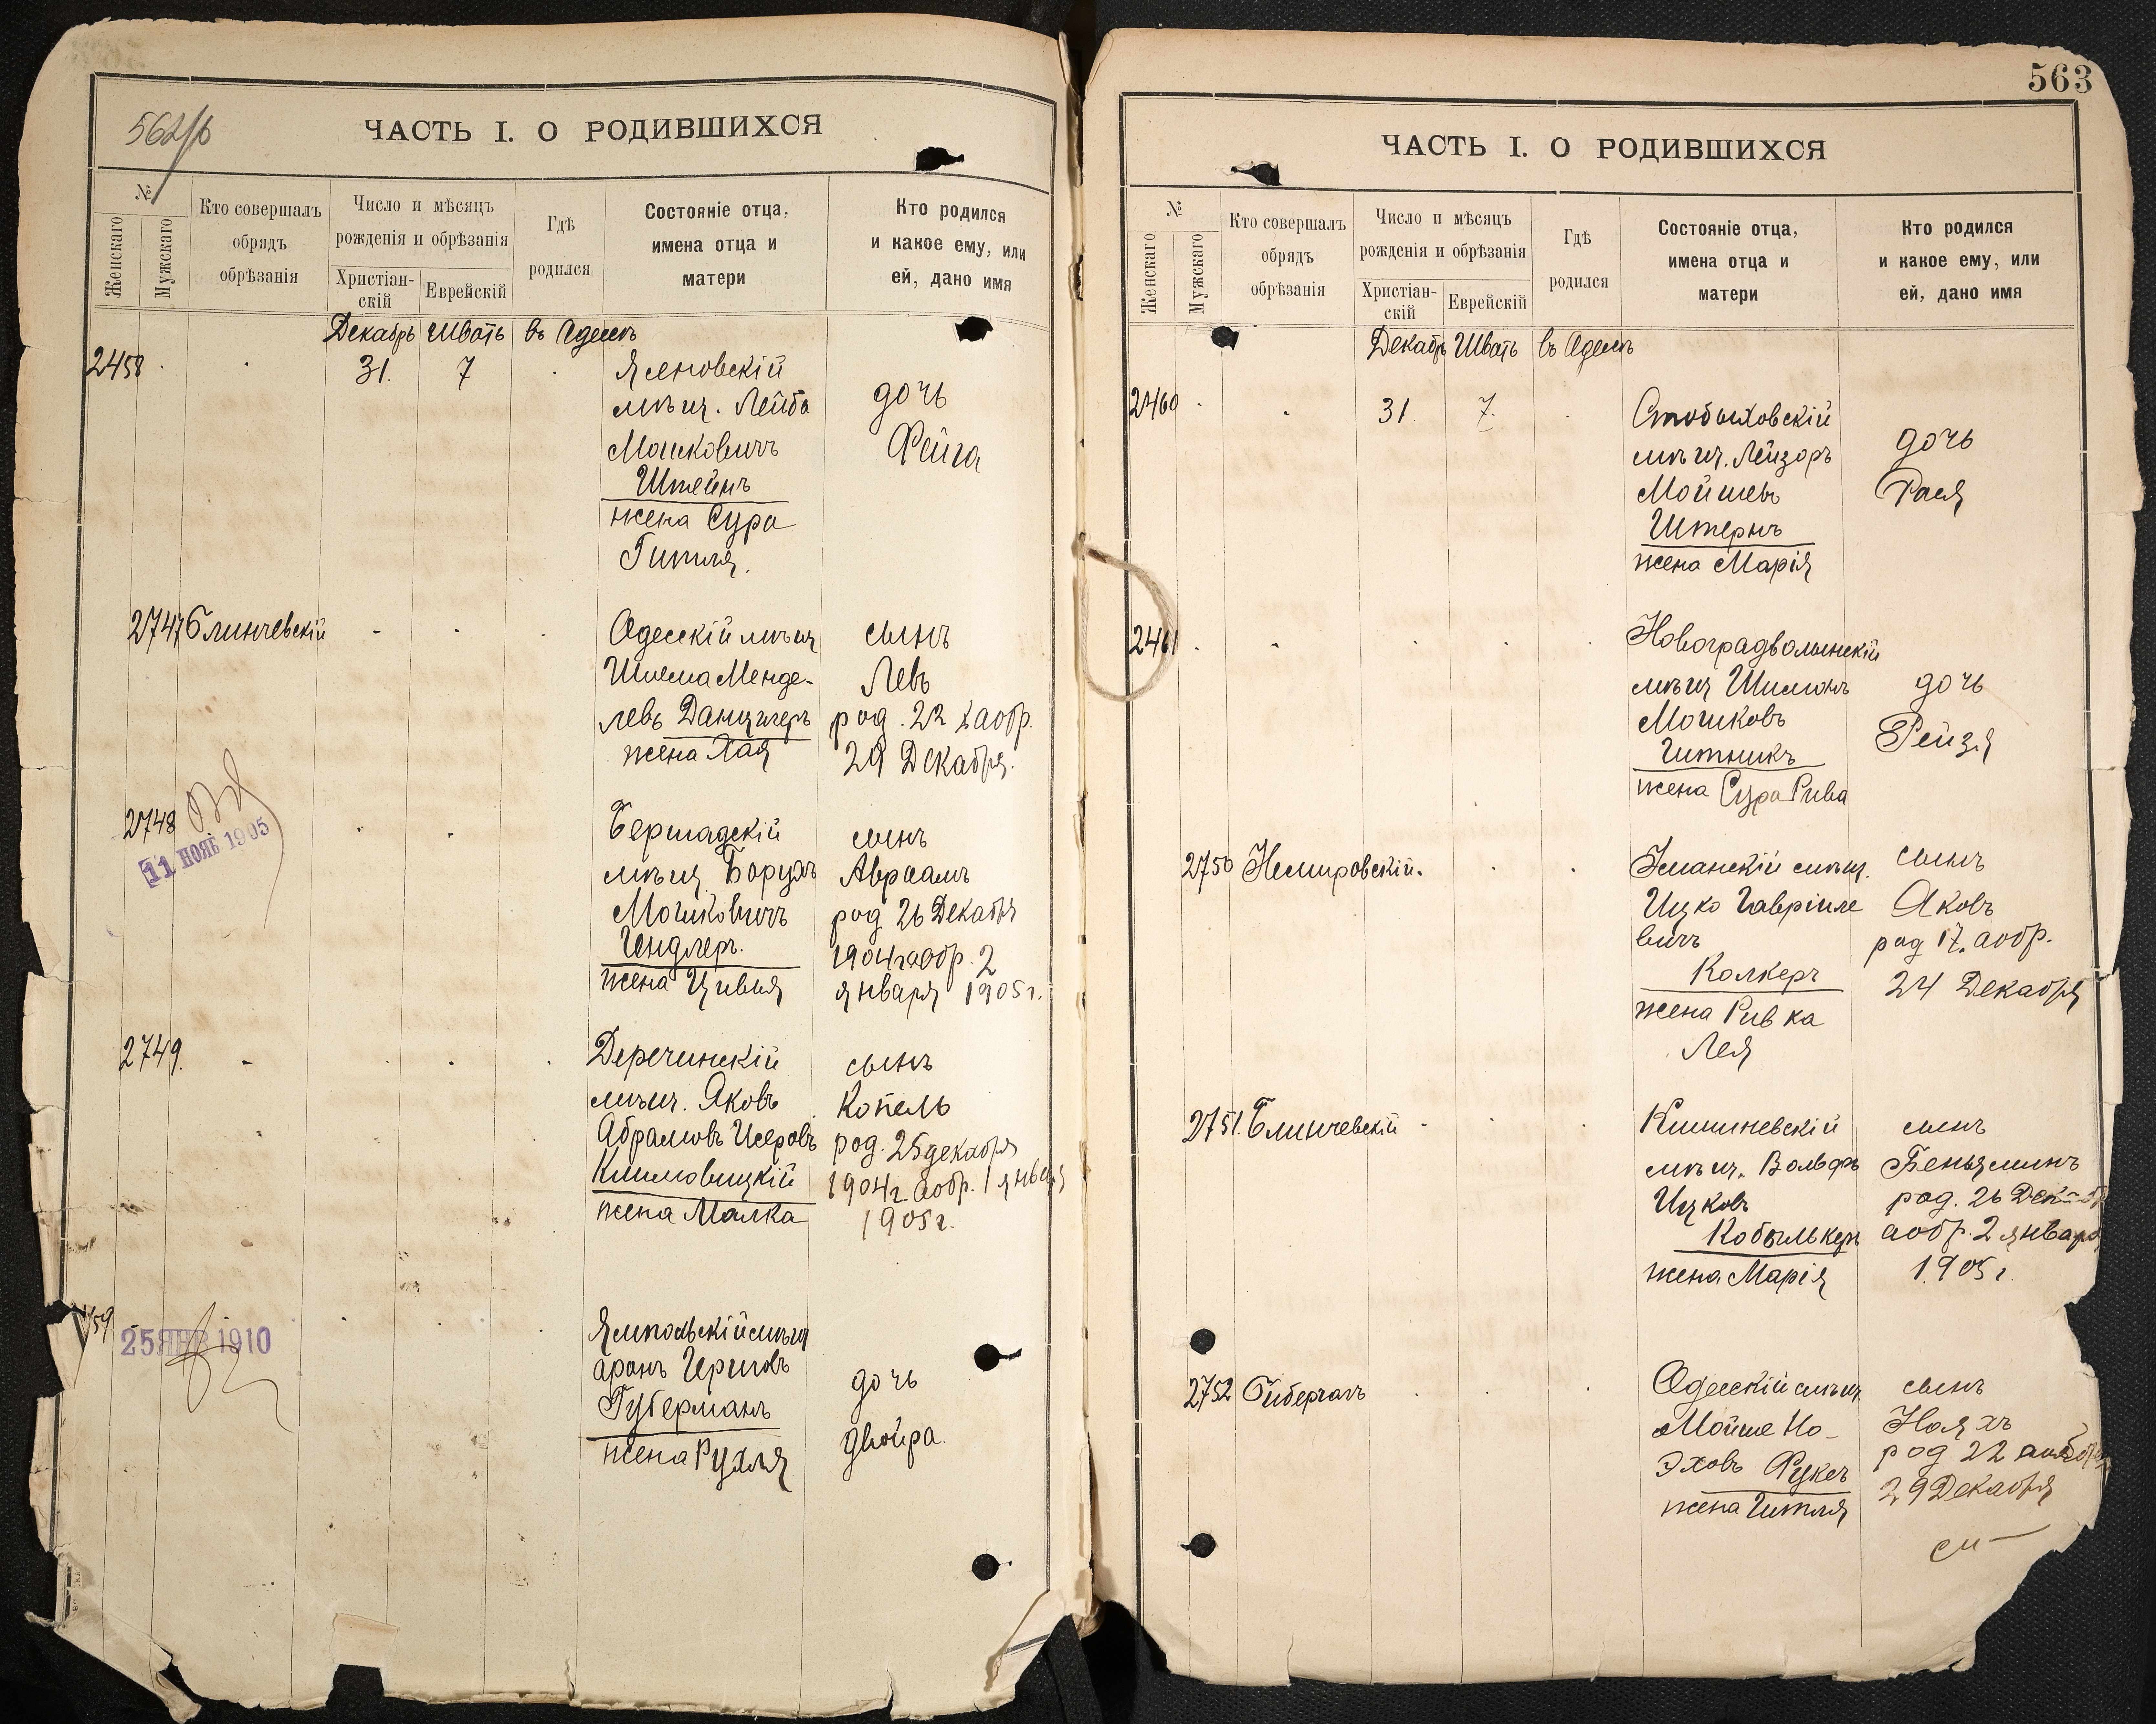 562/б
ЧАСТЬ I. О РОДИВШИХСЯ
№
Женскаго
Мужскаго
Кто совершалъ
обрядъ
обрѣзанія
Число и мѣсяцъ
рожденія и обрѣзанія
Христіан-
скій
Еврейскій
Гдѣ
родился
Состояніе отца,
имена отца и
матери
Кто родился
и какое ему, или
ей, дано имя
Декабрь Шватъ въ Одессѣ
2458 31. 7 Ясеновскій
мѣщ. Лейба
Мошковичъ
Штейнъ
жена Сура
Гитля.
дочь
Фейга
2747 Блинчевскій Одесскій мѣщ
Шлема Менде-
левъ Данцигеръ
жена Хая
сынъ
Левъ
род. 22 а обр.
29 Декабря.
2748
11 НОЯБ 1905
Бершадскій
мѣщ Борухъ
Мошковичъ
Гендлеръ.
жена Цивья
сынъ
Авраамъ
род 26 Декабря
1904г а обр. 2
января 1905г.
2749. Деречинскій
мѣщ. Яковъ
Абрамовъ Исеровъ
Климовицкій
жена Малка
сынъ
Копель
род. 25 декабря
1904г. а обр. 1 января
1905г.
59
25 ЯНВ 1910
Ямпольскій мѣщ
Аронъ Гершовъ
Губерманъ
жена Рухля
дочь
Двойра.
563
ЧАСТЬ I. О РОДИВШИХСЯ
№
Женскаго
Мужскаго
Кто совершалъ
обрядъ
обрѣзанія
Число и мѣсяцъ
рожденія и обрѣзанія
Христіан-
скій
Еврейскій
Гдѣ
родился
Состояніе отца,
имена отца и
матери
Кто родился
и какое ему, или
ей, дано имя
Декабрь Шватъ въ Одессѣ
2460 31 7.
мѣщ. Лейзоръ
Мойшевъ
Штернъ
жена Марія
дочь
Рася
2461 Новоградволынскій
мѣщ Шимонъ
Мошковъ
Гитникъ
жена Сура Рива
дочь
Рейзя
2750 Немировскій. Уманскій мѣщ.
Ицко Гавріиле
вичъ
Колкеръ
жена Ривка
Лея
сынъ
Яковъ
род 17. а обр.
24 Декабря
2751. Блинчевскій Кишиневскій
мѣщ. Вольфъ
Ицковъ
Кобылькеръ
жена Марія
сынъ
Беньяминъ
род. 26 Декабр
а обр. 2 января
1905г.
2752 Одесскій мѣщ
Мойше Но-
эховъ Фуксъ
жена Гитля
сынъ
Нояхъ
род 22 а обр
29 Декабря